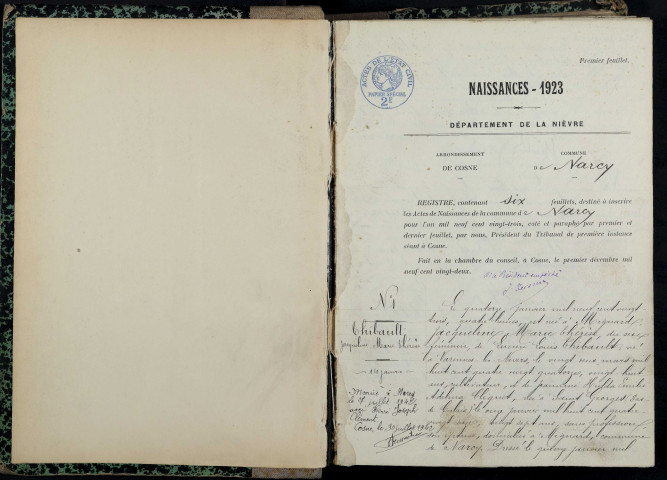 Premier feuillet.
ACTES DE L'ETAT CIVIL
PAPIER SPÉCIAL
2E
NAISSANCES - 1923
DÉPARTEMENT DE LA NIÈVRE
ARRONDISSEMENT
DE COSNE
COMMUNE
de Narcy
REGISTRE, contenant six feuillets, destiné à inscrire
les Actes de Naissances de la commune de Narcy
pour l'an mil neuf cent vingt-trois, coté et paraphé par premier et
dernier feuillet, par nous, Président du Tribunal de première instance
séant à Cosne.
Fait en la chambre du conseil, à Cosne, le premier décembre mil
neuf cent vingt-deux.
Président empêché
N° 1
Thibault
Jacqueline Marie Thérèse
14 janvier
Mariée à Narcy
le 17 juillet 1945
avec Henri Joseph
Clément
Cosne, le 30 juillet 1945
Le quatorze janvier mil neuf cent vingt
trois, quatre heures, est née à Mignard,
Jacqueline Marie Thérèse, du sexe
féminin, de Louis Thibault, né
à Varennes les Nevers, le vingt mars mil
huit cent quatre vingt quatorze, vingt huit
ans, cultivateur, et de Hilda Emilie
née à Saint Georges,
janvier mil huit cent quatre
vingt vingt sept ans, sans profession,
son épouse, domiciliés à Mignard, commune
de Narcy. Dressé le quinze janvier mil